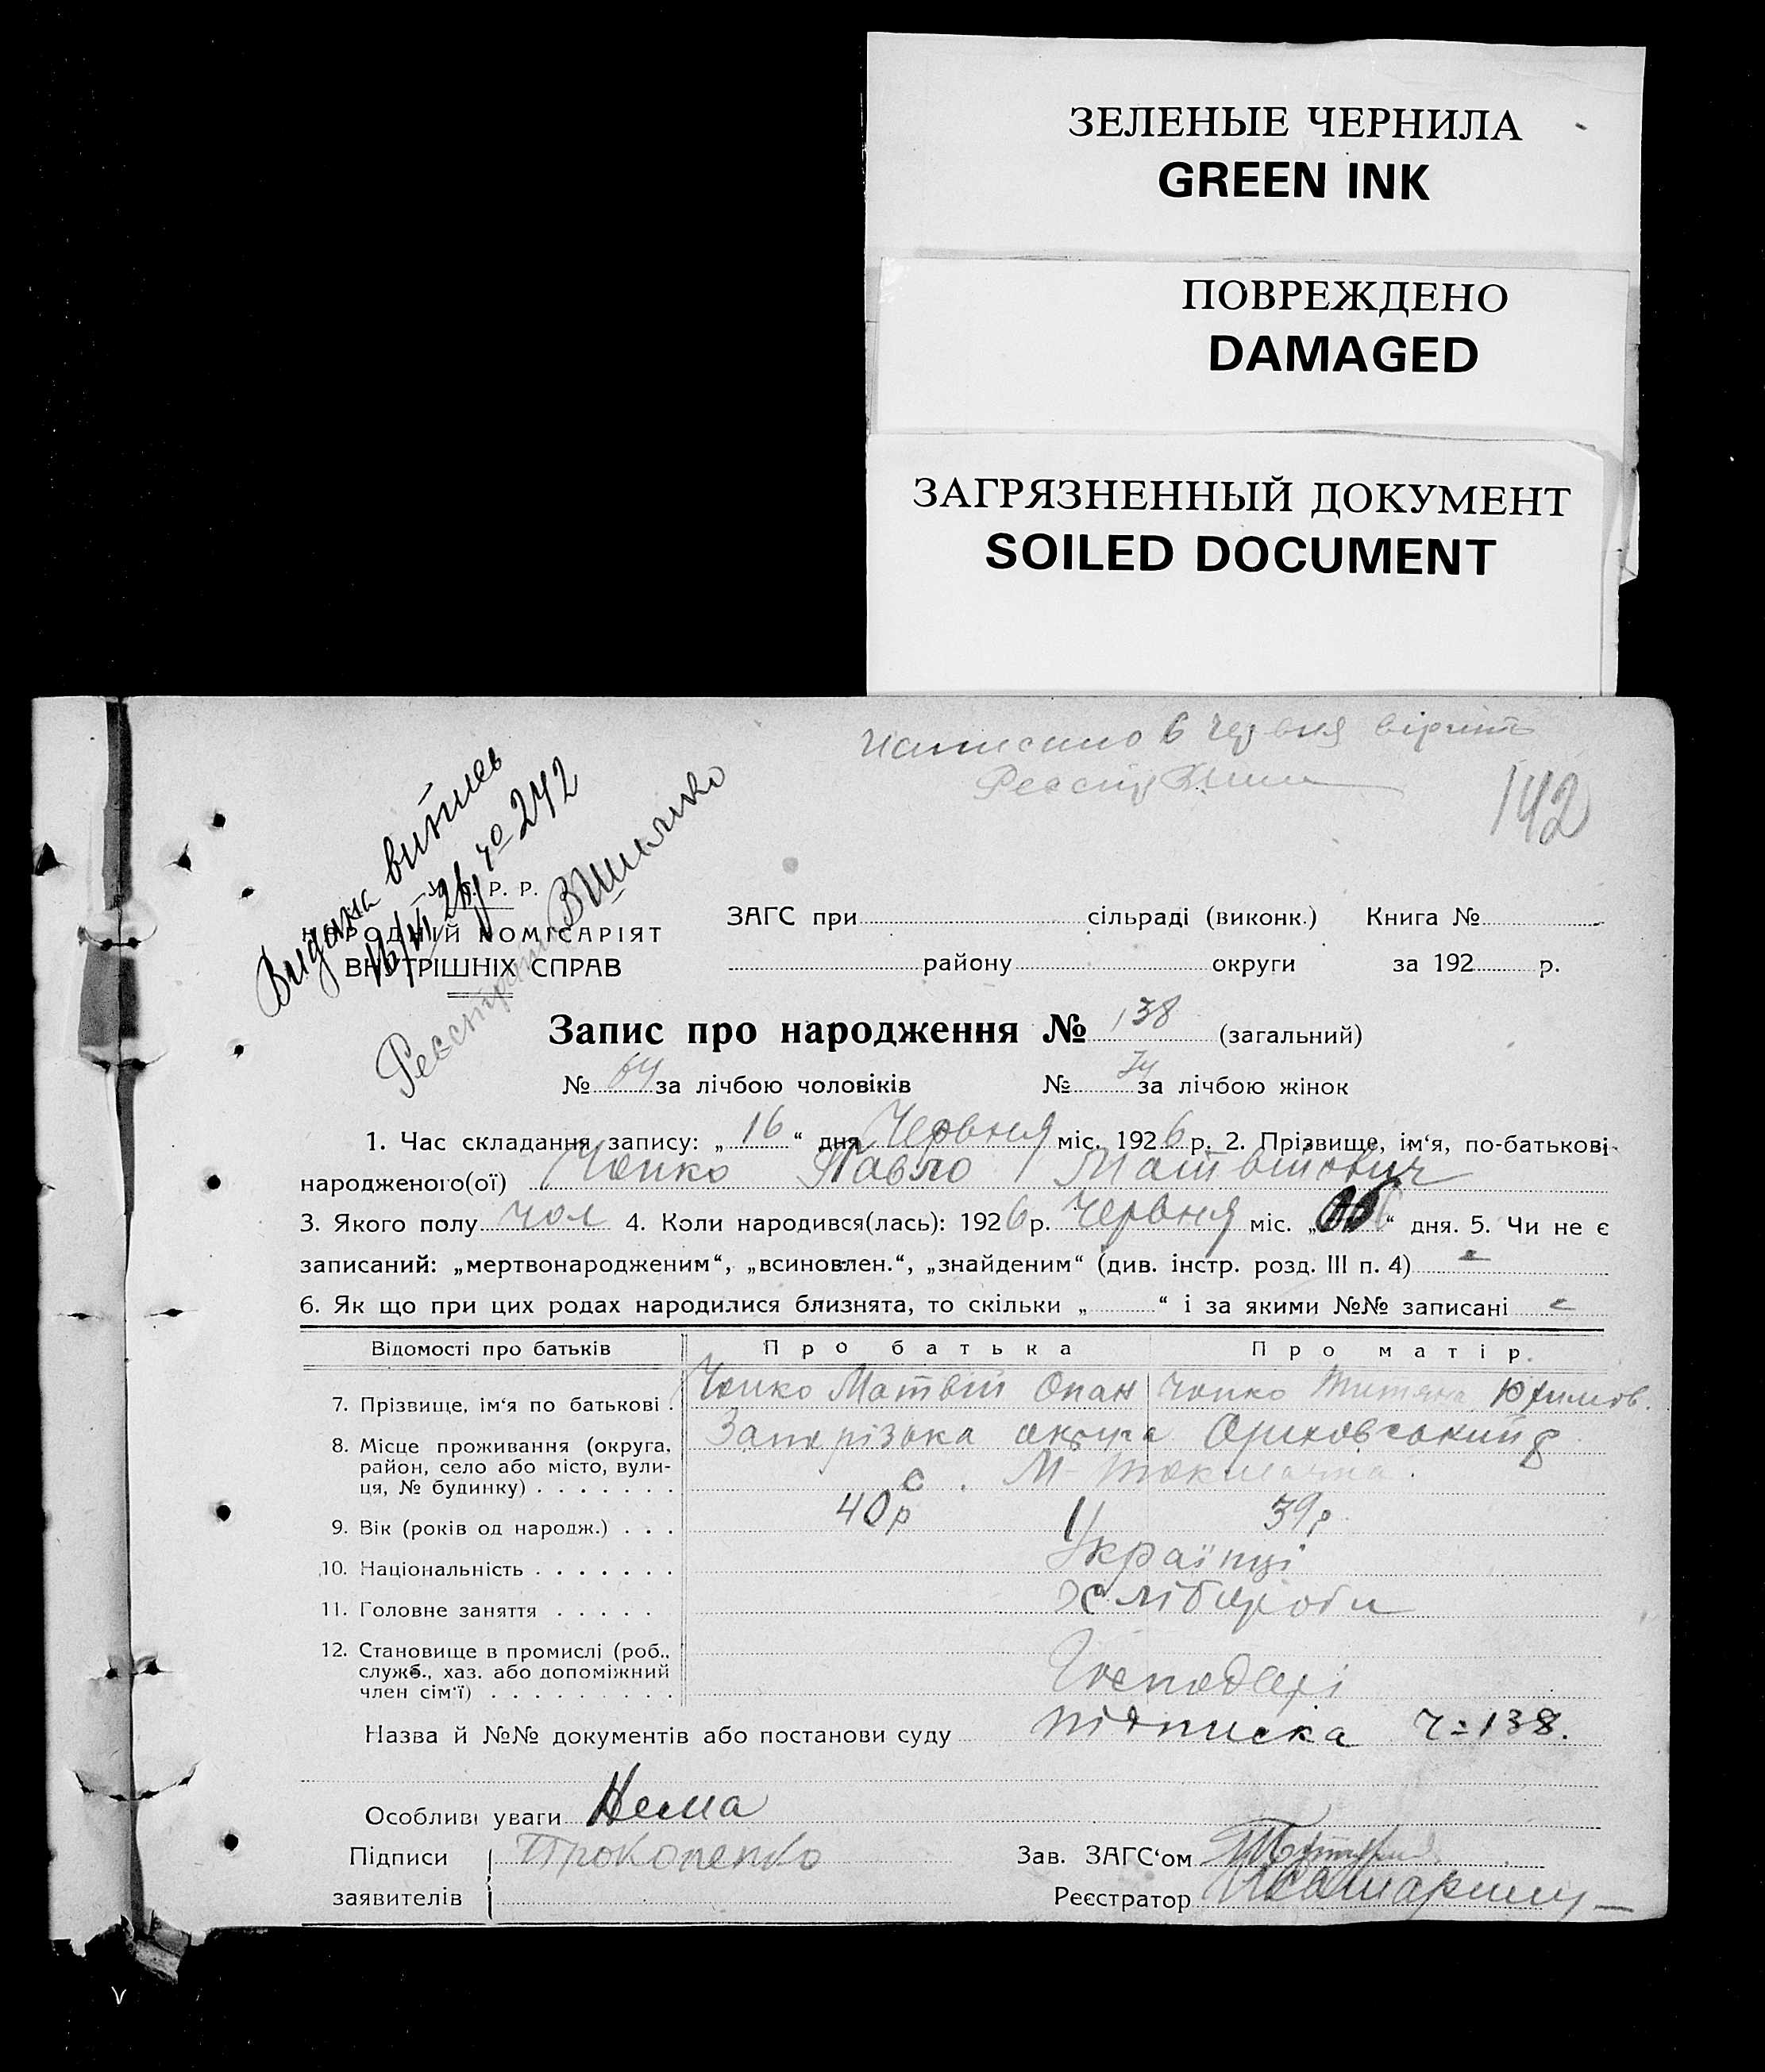 ЗЕЛЕНЫЕ ЧЕРНИЛА
GREEN INK
ПОВРЕЖДЕНО
DAMAGED
ЗАГРЯЗНЕННЫЙ ДОКУМЕНТ
SOILED DOCUMENT
Написано 6 червня вірить
142
Видана витпев
16/VI 26 го 242
У. С. Р. Р.
НАРОДНІЙ КОМІСАРІЯТ
ВНУТРІШНІХ СПРАВ
ЗАГС при сільраді (виконк.) Книга №
району округи за 192 р.
Запис про народження № 138 (загальний)
№ 64 за лічбою чоловіків № 74 за лічбою жінок
1. Час складання запису: „ 16 “ дня Червня міс. 1926 р. 2. Прізвище, ім‘я, по-батькові
народженого(ої) Чопко Павло Матвійович
3. Якого полу чол 4. Коли народився(лась): 1926 р. Червня міс. „ 6 “ дня. 5. Чи не є
записаний: „мертвонародженим“, „всиновлен.“, „знайденим“ (див. інстр. розд. III п. 4)
6. Як що при цих родах народилися близнята, то скільки „ “ і за якими №№ записані
Відомості про батьків Про батька Про матір.
7. Прізвище, ім‘я по батькові . Чопко Матвій Опан Чопко Титяна Юхимов.
8. Місце проживання (округа, Запорізька округа Оріховський
район, село або місто, вули-
ця, № будинку) . . . . . . . с. М-Токмачка.
9. Вік (років од народж.) . . . 40р 39р.
10. Національність . . . . . . . Українці
11. Головне заняття . . . . . Хлібороби
12. Становище в промислі (роб.,
служб., хаз. або допоміжний
член сім‘ї) . . . . . . . . . Господарі
Назва й №№ документів або постанови суду підписка Ч=138.
Особливі уваги Нема
Підписи Прокопенко Зав. ЗАГС‘ом
заявителів Реєстратор